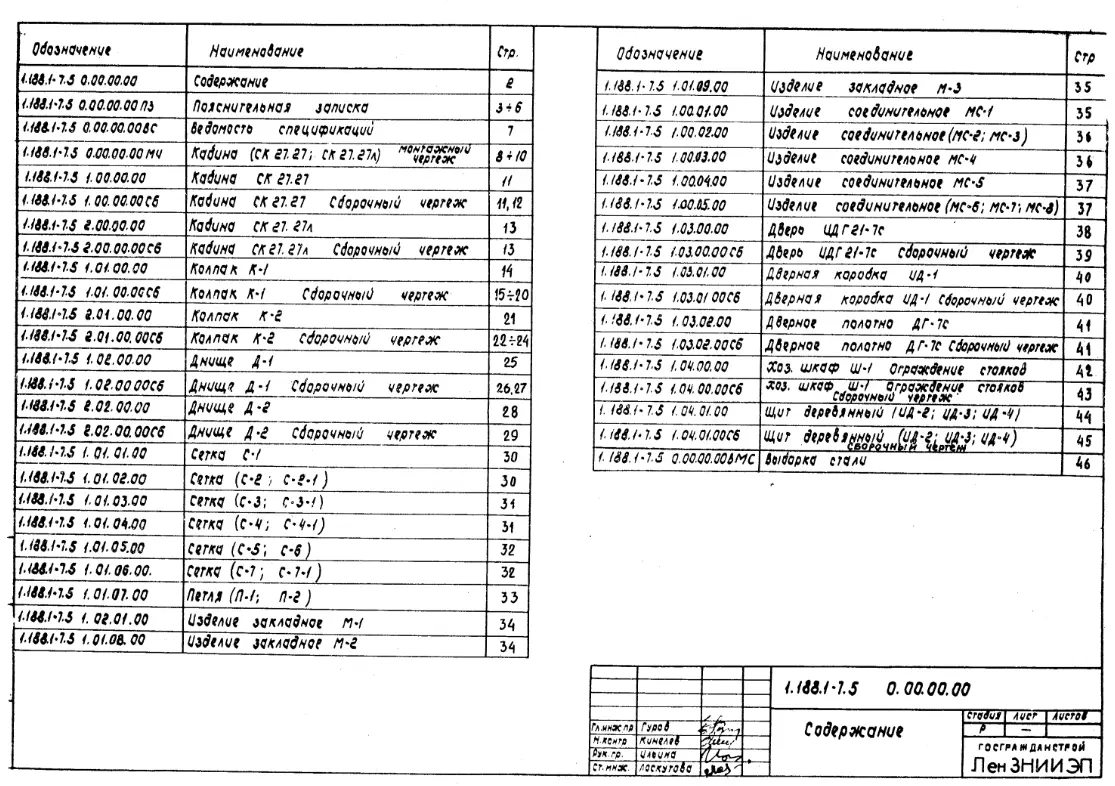 Обозначение Наименование Стр.
1.188.1-7.5 0.00.00.00 Содержание 2
1.188.1-7.5 0.00.00.00 ПЗ Пояснительная записка 3÷6
1.188.1-7.5 0.00.00.00ВС Ведомость спецификаций 7
1.188.1-7.5 0.00.00.00 МЧ Кабина (СК 27.27; СК 27.27л) монтажный чертеж 8÷10
1.188.1-7.5 1.00.00.00 Кабина СК 27.27 11
1.188.1-7.5 1.00.00.00СБ Кабина СК 27.27 Сборочный чертеж 11,12
1.188.1-7.5 2.00.00.00 Кабина СК 27.27л 13
1.188.1-7.5 2.00.00.00СБ Кабина СК 27.27л Сборочный чертеж 13
1.188.1-7.5 1.01.00.00 Колпак К-1 14
1.188.1-7.5 1.01.00.00СБ Колпак К-1 Сборочный чертеж 15÷20
1.188.1-7.5 2.01.00.00 Колпак К-2 21
1.188.1-7.5 2.01.00.00СБ Колпак К-2 Сборочный чертеж 22÷24
1.188.1-7.5 1.02.00.00 Днище Д-1 25
1.188.1-7.5 1.02.00.00СБ Днище Д-1 Сборочный чертеж 26,27
1.188.1-7.5 2.02.00.00 Днище Д-2 28
1.188.1-7.5 2.02.00.00СБ Днище Д-2 Сборочный чертеж 29
1.188.1-7.5 1.01.01.00 Сетка С-1 30
1.188.1-7.5 1.01.02.00 Сетка (С-2; С-2-1) 30
1.188.1-7.5 1.01.03.00 Сетка (С-3; С-3-1) 31
1.188.1-7.5 1.01.04.00 Сетка (С-4; С-4-1) 31
1.188.1-7.5 1.01.05.00 Сетка (С-5; С-6) 32
1.188.1-7.5 1.01.06.00. Сетка (С-7; С-7-1) 32
1.188.1-7.5 1.01.07.00 Петля (П-1; П-2) 33
1.188.1-7.5 1.02.01.00 Изделие закладное М-1 34
1.188.1-7.5 1.01.08.00 Изделие закладное М-2 34
Обозначение Наименование Стр
1.188.1-7.5 1.01.09.00 Изделие закладное М-3 35
1.188.1-7.5 1.00.01.00 Изделие соединительное МС-1 35
1.188.1-7.5 1.00.02.00 Изделие соединительное (МС-2; МС-3) 36
1.188.1-7.5 1.00.03.00 Изделие соединительное МС-4 36
1.188.1-7.5 1.00.04.00 Изделие соединительное МС-5 37
1.188.1-7.5 1.00.05.00 Изделие соединительное (МС-6; МС-7; МС-8) 37
1.188.1-7.5 1.03.00.00 Дверь ЦДГ21-7с 38
1.188.1-7.5 1.03.00.00СБ Дверь ИДГ21-7с Сборочный чертеж 39
1.188.1-7.5 1.03.01.00 Дверная коробка ИД-1 40
1.188.1-7.5 1.03.01 00СБ Дверная коробка ИД-1 Сборочный чертеж 40
1.188.1-7.5 1.03.02.00 Дверное полотно ДГ-7с 41
1.188.1-7.5 1.03.02.00СБ Дверное полотно ДГ-7с Сборочный чертеж 41
1.188.1-7.5 1.04.00.00 Хоз. шкаф Ш-1 Ограждение стояков 42
1.188.1-7.5 1.04.00.00СБ Хоз. шкаф Ш-1 Ограждение стояков Сборочный чертеж 43
1.188.1-7.5 1.04.01.00 Щит деревянный (ИД-2; ИД-3; ИД-4) 44
1.188.1-7.5 1.04.01.00СБ Щит деревянный (ИД-2; ИД-3; ИД-4) Сборочный чертеж 45
1.188.1-7.5 0.00.00.00ВМС Выборка стали 46
1.188.1-7.5 0.00.00.00
Содержание
Стадия Лист Листов
Р —
Гл.инж.пр Гуров
Н.контр Кинелев
Рук.гр. Ильина
Ст.инж. Ласкутова
ГОСГРАЖДАНСТРОЙ
ЛенЗНИИЭП